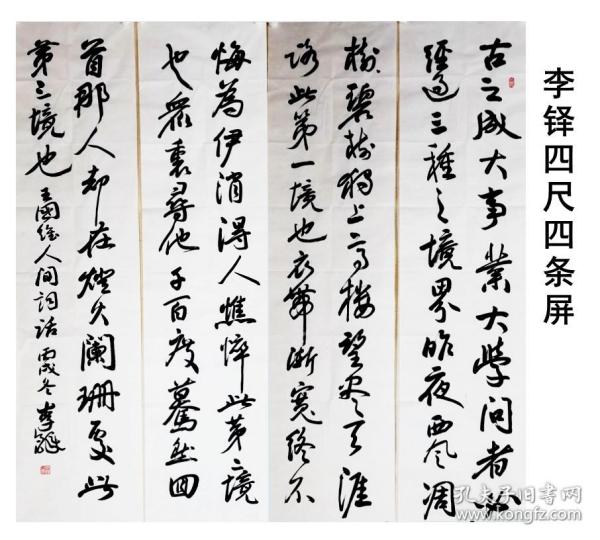 李铎四尺四条屏
古之成大事業大學问者必
經過三種之境界昨夜西風凋
樹碧樹獨上高樓望盡天涯
路此第一境也衣帶漸寬終不
悔為伊消得人憔悴此第二境
也眾裏尋他千百度驀然回
首那人却在燈火闌珊處此
第三境也 王國維人间词话 丙戌冬 李鐸
孔夫子旧书网
www.kongfz.com